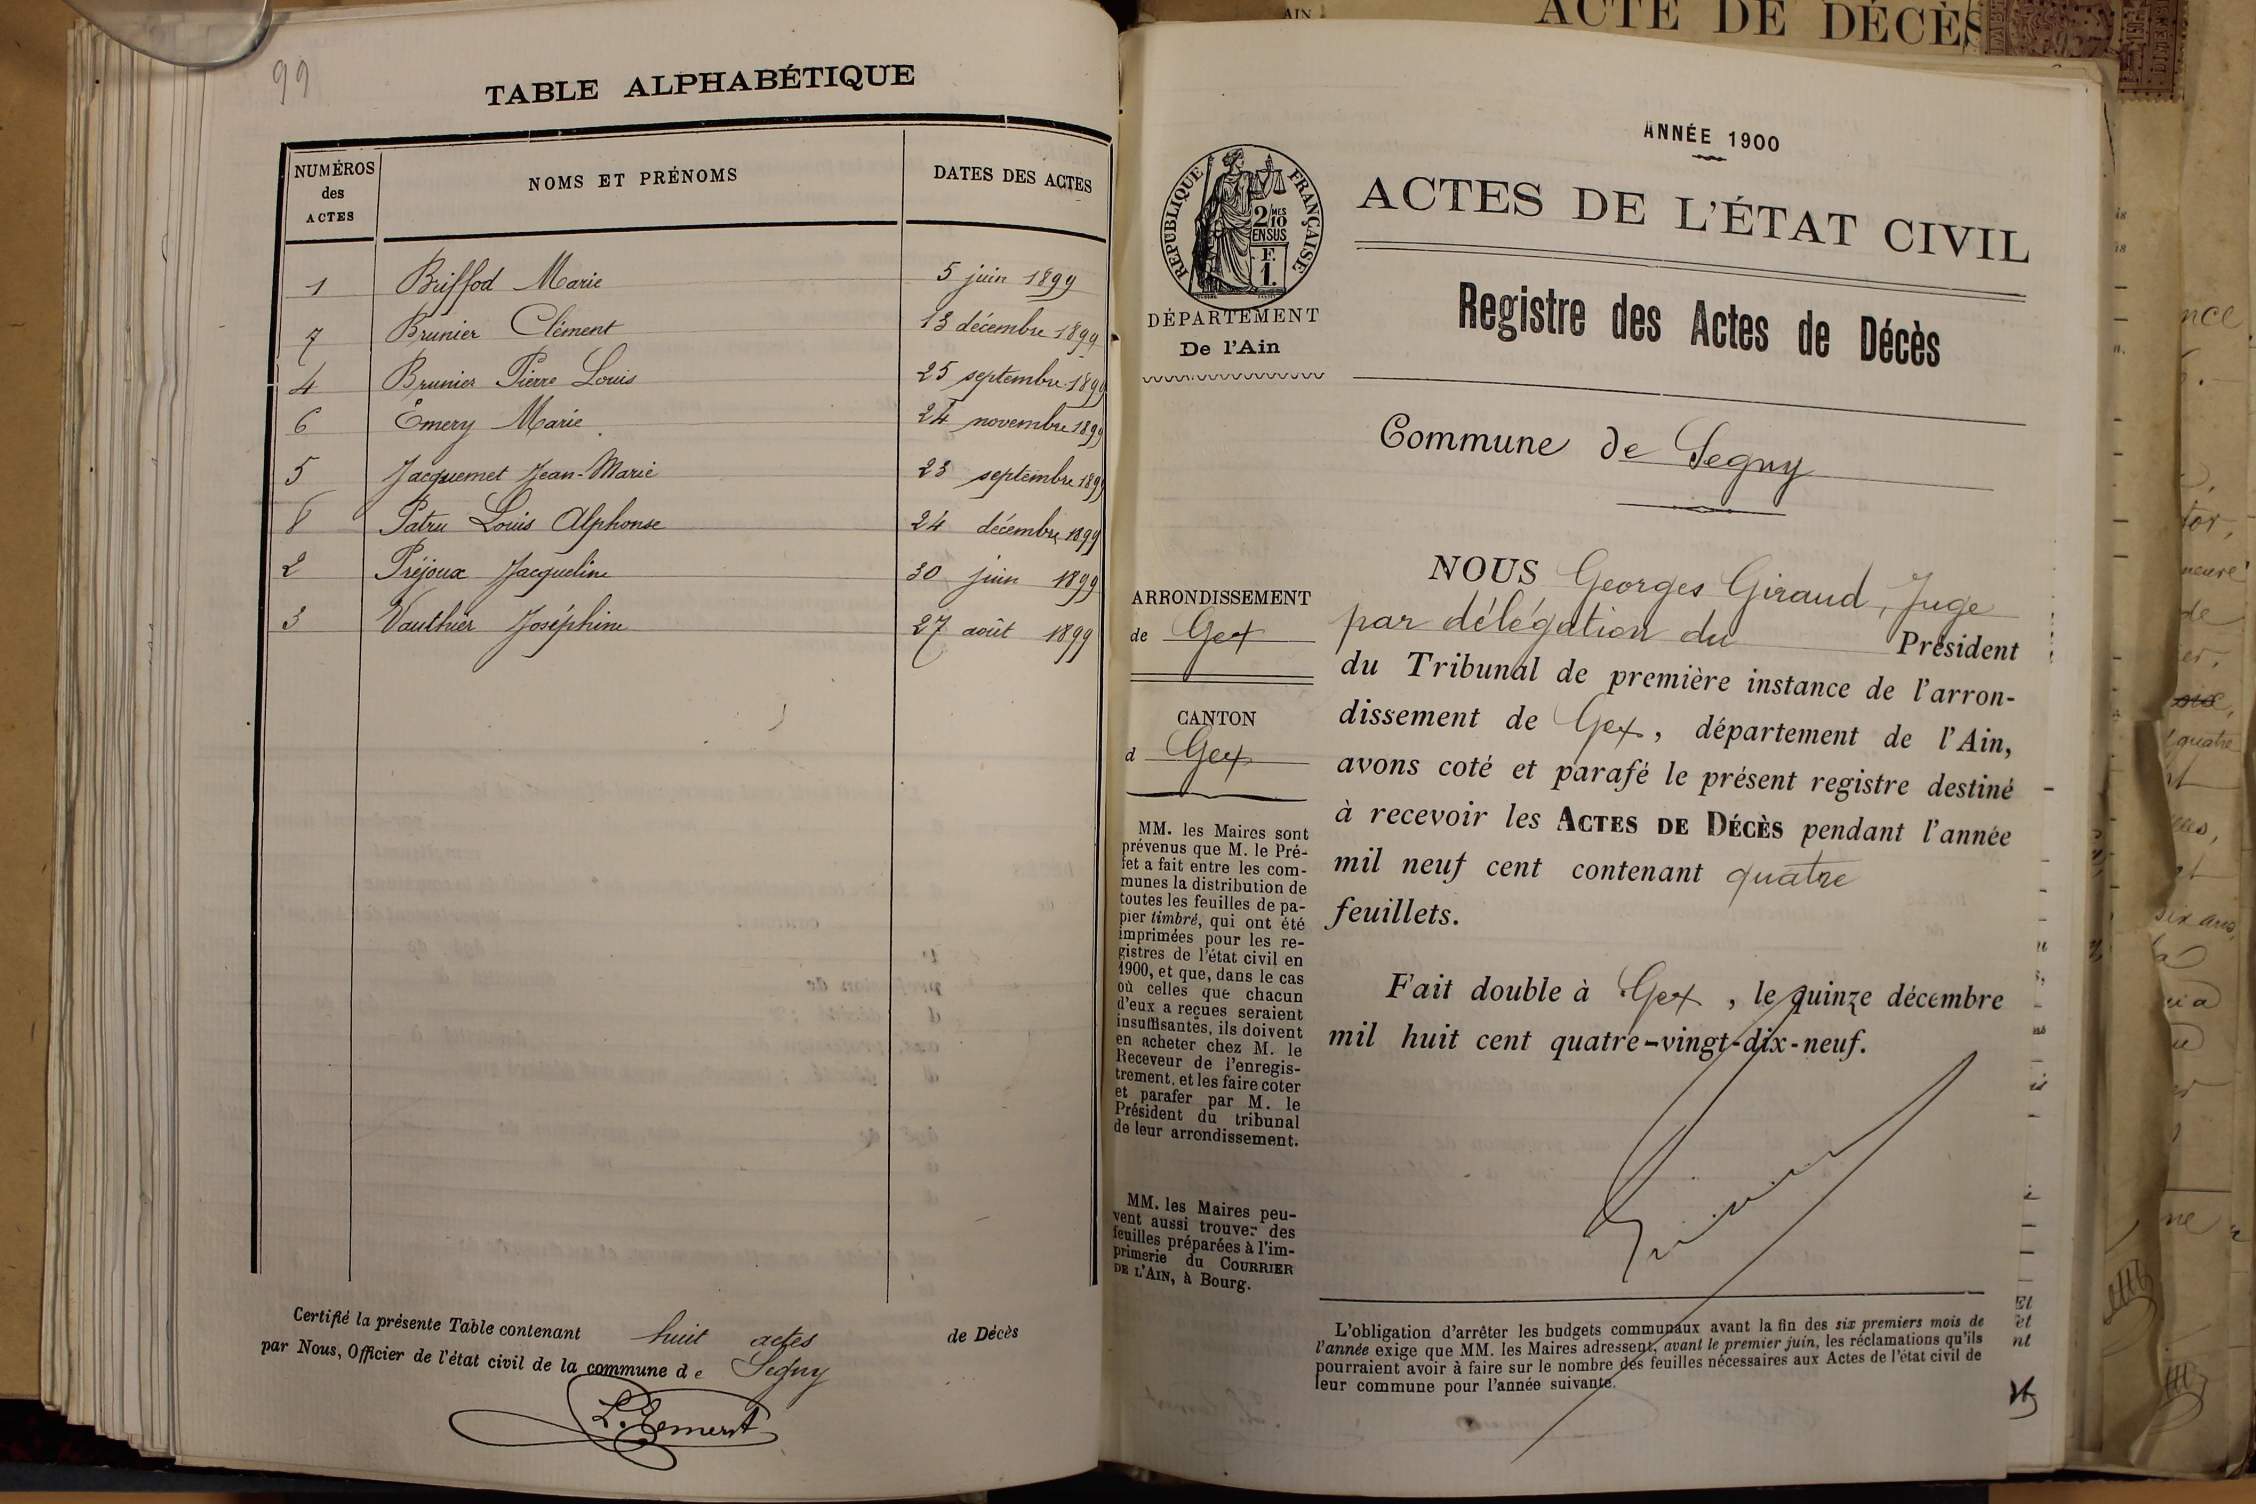 99
TABLE ALPHABÉTIQUE
NUMÉROS des ACTES NOMS ET PRÉNOMS DATES DES ACTES
1 Briffod Marie 5 juin 1899
7 Brunier Clément 13 décembre 1899
4 Brunier Pierre Louis 25 septembre 1899
6 Emery Marie 24 novembre 1899
5 Jacquemet Jean-Marie 23 septembre 1899
8 Patru Louis Alphonse 24 décembre 1899
2 Préjoux Jacqueline 30 juin 1899
3 Vauthier Joséphine 27 août 1899
Certifié la présente Table contenant huit actes de Décès
par Nous, Officier de l'état civil de la commune de Segny
ACTE DE DÉCÈS
AIN
ANNÉE 1900
RÉPUBLIQUE FRANÇAISE
2/10 MES
EN SUS
F.
1.
ACTES DE L'ÉTAT CIVIL
DÉPARTEMENT
De l'Ain
Registre des Actes de Décès
Commune de Segny
ARRONDISSEMENT
de Gex
CANTON
d Gex
MM. les Maires sont
prévenus que M. le Pré-
fet a fait entre les com-
munes la distribution de
toutes les feuilles de pa-
pier timbré, qui ont été
imprimées pour les re-
gistres de l'état civil en
1900, et que, dans le cas
où celles que chacun
d'eux a reçues seraient
insuffisantes, ils doivent
en acheter chez M. le
Receveur de l'enregis-
trement, et les faire coter
et parafer par M. le
Président du tribunal
de leur arrondissement.
MM. les Maires peu-
vent aussi trouver des
feuilles préparées à l'im-
primerie du COURRIER
DE L'AIN, à Bourg.
NOUS Georges Giraud, Juge
par délégation du Président
du Tribunal de première instance de l'arron-
dissement de Gex, département de l'Ain,
avons coté et parafé le présent registre destiné
à recevoir les ACTES DE DÉCÈS pendant l'année
mil neuf cent contenant quatre
feuillets.
Fait double à Gex, le quinze décembre
mil huit cent quatre-vingt-dix-neuf.
L'obligation d'arrêter les budgets communaux avant la fin des six premiers mois de
l'année exige que MM. les Maires adressent, avant le premier juin, les réclamations qu'ils
pourraient avoir à faire sur le nombre des feuilles nécessaires aux Actes de l'état civil de
leur commune pour l'année suivante.